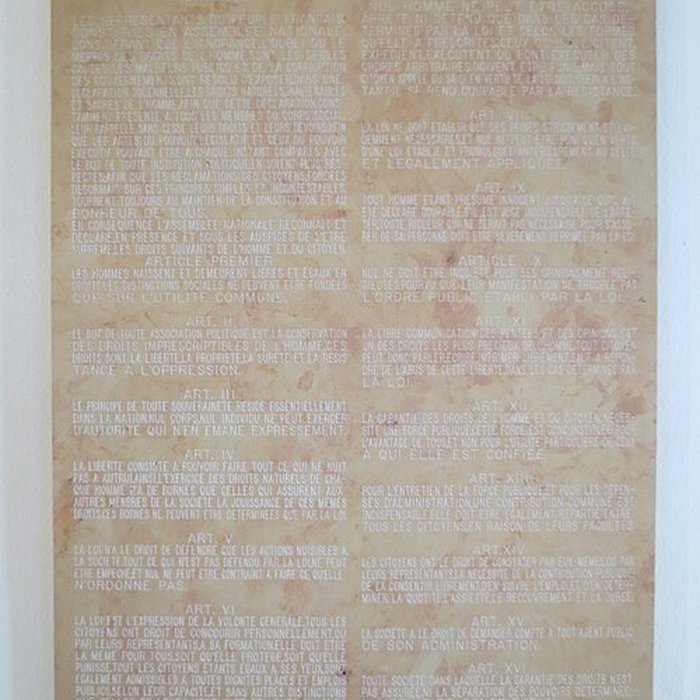 LES REPRESENTANTS DU PEUPLE FRANCAIS
CONSTITUES EN ASSEMBLEE NATIONALE
CONSIDERANT QUE L'IGNORANCE, L'OUBLI OU LE
MEPRIS DES DROITS DE L'HOMME SONT LES SEULES
DES GOUVERNEMENTS ONT RESOLU D'EXPOSER DANS UNE
DECLARATION SOLENNELLE LES DROITS NATURELS INALIENABLES
ET SACRES DE L'HOMME, AFIN QUE CETTE DECLARATION, CONS
TAMMENT PRESENTE A TOUS LES MEMBRES DU CORPS SOCIAL
LEUR RAPPELLE SANS CESSE LEURS DROITS ET LEURS DEVOIRS, AFIN
QUE LES ACTES DU POUVOIR LEGISLATIF ET CEUX DU POUVOIR
EXECUTIF POUVANT ETRE A CHAQUE INSTANT COMPARES AVEC
LE BUT DE TOUTE INSTITUTION POLITIQUE EN SOIENT PLUS RES-
PECTES, AFIN QUE LES RECLAMATIONS DES CITOYENS, FONDEES
DESORMAIS SUR DES PRINCIPES SIMPLES ET INCONTESTABLES
TOURNENT TOUJOURS AU MAINTIEN DE LA CONSTITUTION ET AU
BONHEUR DE TOUS.
EN CONSEQUENCE L'ASSEMBLEE NATIONALE RECONNAIT ET
DECLARE, EN PRESENCE ET SOUS LES AUSPICES DE L'ETRE
SUPREME, LES DROITS SUIVANTS DE L'HOMME ET DU CITOYEN.
ARTICLE PREMIER
LES HOMMES NAISSENT ET DEMEURENT LIBRES ET EGAUX EN
DROITS, LES DISTINCTIONS SOCIALES NE PEUVENT ETRE FONDEES
QUE SUR L'UTILITE COMMUNE.
ART. II
LE BUT DE TOUTE ASSOCIATION POLITIQUE EST LA CONSERVATION
DES DROITS IMPRESCRIPTIBLES DE L'HOMME, CES
DROITS SONT LA LIBERTE, LA PROPRIETE, LA SURETE ET LA RESIS
TANCE A L'OPPRESSION.
ART. III
LE PRINCIPE DE TOUTE SOUVERAINETE RESIDE ESSENTIELLEMENT
DANS LA NATION, NUL CORPS, NUL INDIVIDU NE PEUT EXERCER
D'AUTORITE QUI N'EN EMANE EXPRESSEMENT.
ART. IV
LA LIBERTE CONSISTE A POUVOIR FAIRE TOUT CE QUI NE NUIT
PAS A AUTRUI, AINSI L'EXERCICE DES DROITS NATURELS DE CHA-
QUE HOMME N'A DE BORNES QUE CELLES QUI ASSURENT AUX
AUTRES MEMBRES DE LA SOCIETE LA JOUISSANCE DE CES MEMES
DROITS, CES BORNES NE PEUVENT ETRE DETERMINEES QUE PAR LA LOI
ART. V
LA LOI N'A LE DROIT DE DEFENDRE QUE LES ACTIONS NUISIBLES A
LA SOCIETE, TOUT CE QUI N'EST PAS DEFENDU PAR LA LOI, NE PEUT
ETRE EMPECHE, ET NUL NE PEUT ETRE CONTRAINT A FAIRE CE QU'ELLE
N'ORDONNE PAS.
ART. VI
LA LOI EST L'EXPRESSION DE LA VOLONTE GENERALE, TOUS LES
CITOYENS ONT DROIT DE CONCOURIR PERSONNELLEMENT, OU
PAR LEURS REPRESENTANTS, A SA FORMATION, ELLE DOIT ETRE
LA MEME POUR TOUS, SOIT QU'ELLE PROTEGE, SOIT QU'ELLE
PUNISSE, TOUT LES CITOYENS ETANTS EGAUX A SES YEUX, SONT
EGALEMENT ADMISSIBLES A TOUTES DIGNITES PLACES ET EMPLOIS
PUBLICS, SELON LEUR CAPACITE, ET SANS AUTRES DISTINCTIONS
NUL HOMME NE PEUT ETRE ACCUSE,
ARRETE NI DETENU QUE DANS LES CAS DE-
TERMINES PAR LA LOI ET SELON LES FORMES
QU'ELLE A PRESCRITES, CEUX QUI
EXPEDIENT, EXECUTENT OU FONT EXECUTER DES
ORDRES ARBITRAIRES
CITOYEN APPELE OU SAISI EN VERTU DE LA LOI
TANT, IL SE REND COUPABLE PAR LA RESISTANCE
ART.
LA LOI NE DOIT ETABLIR QUE DES PEINES STRICTEMENT ET
UNE LOI ETABLIE ET PROMULGUEE ANTERIEUREMENT AU DELIT
ET LEGALEMENT APPLIQUEE.
ART. IX
TOUT HOMME ETANT PRESUME INNOCENT JUSQU'A CE QU'IL AIT
ETE DECLARE COUPABLE, S'IL EST JUGE INDISPENSABLE DE L'ARRE
TER, TOUTE RIGUEUR QUI NE SERAIT PAS NECESSAIRE POUR S'ASSU-
RER DE SA PERSONNE DOIT ETRE SEVEREMENT REPRIMEE PAR LA LOI
ARTICLE X
NUL NE DOIT ETRE INQUIETE POUR SES OPINIONS, MEME RELI-
GIEUSES, POURVU QUE LEUR MANIFESTATION NE TROUBLE PAS
L'ORDRE PUBLIC ETABLI PAR LA LOI.
ART. XI
LA LIBRE COMMUNICATION DES PENSEES ET DES OPINIONS EST
UN DES DROITS LES PLUS PRECIEUX DE L'HOMME, TOUT CITOYEN
PEUT DONC PARLER, ECRIRE, IMPRIMER LIBREMENT, SAUF A REPON-
DRE DE L'ABUS DE CETTE LIBERTE DANS LES CAS DETERMINES PAR
LA LOI.
ART. XII
LA GARANTIE DES DROITS DE L'HOMME ET DU CITOYEN NECES-
SITE UNE FORCE PUBLIQUE, CETTE FORCE EST DONC INSTITUEE POUR
L'AVANTAGE DE TOUS ET NON POUR L'UTILITE PARTICULIERE DE CEUX
A QUI ELLE EST CONFIEE.
ART. XIII
POUR L'ENTRETIEN DE LA FORCE PUBLIQUE, ET POUR LES DEPEN-
SES D'ADMINISTRATION, UNE CONTRIBUTION COMMUNE EST
INDISPENSABLE, ELLE DOIT ETRE EGALEMENT REPARTIE ENTRE
TOUS LES CITOYENS, EN RAISON DE LEURS FACULTES.
ART. XIV
LES CITOYENS ONT LE DROIT DE CONSTATER PAR EUX-MEMES, OU PAR
LEURS REPRESENTANTS, LA NECESSITE DE LA CONTRIBUTION PUBLIQUE
DE LA CONSENTIR LIBREMENT, D'EN SUIVRE L'EMPLOI ET D'EN DETER
MINER LA QUOTITE, L'ASSIETTE, LE RECOUVREMENT ET LA DUREE.
ART. XV
LA SOCIETE A LE DROIT DE DEMANDER COMPTE A TOUT AGENT PUBLIC
DE SON ADMINISTRATION.
ART. XVI
TOUTE SOCIETE DANS LAQUELLE LA GARANTIE DES DROITS N'EST
PAS ASSUREE, NI LA SEPARATION DES POUVOIRS DETERMINEE